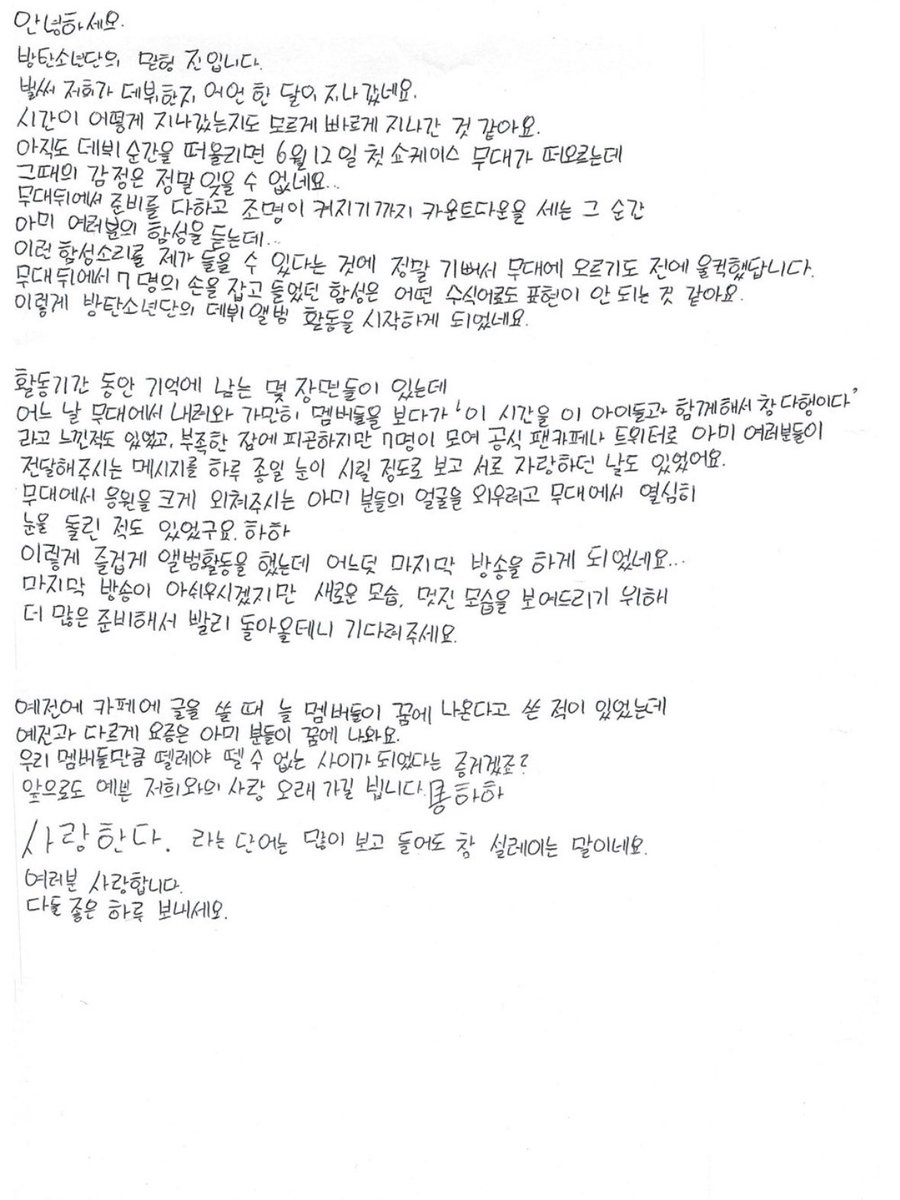 안녕하세요.
방탄소년단의 맏형 진입니다.
벌써 저희가 데뷔한지 어언 한 달이 지나갔네요.
시간이 어떻게 지나갔는지도 모르게 빠르게 지나간 것 같아요.
아직도 데뷔 순간을 떠올리면 6월 12일 첫 쇼케이스 무대가 떠오르는데
그때의 감정은 정말 잊을 수 없네요...
무대뒤에서 준비를 다하고 조명이 켜지기까지 카운트다운을 세는 그 순간
아미 여러분의 함성을 듣는데...
이런 함성소리를 제가 들을 수 있다는 것에 정말 기뻐서 무대에 오르기도 전에 울컥했답니다.
무대뒤에서 7명의 손을 잡고 들었던 함성은 어떤 수식어로도 표현이 안 되는 것 같아요.
이렇게 방탄소년단의 데뷔앨범 활동을 시작하게 되었네요.
활동기간 동안 기억에 남는 몇 장면들이 있는데
어느 날 무대에서 내려와 가만히 멤버들을 보다가 '이 시간을 이 아이들과 함께해서 참 다행이다'
라고 느낀적도 있었고, 부족한 잠에 피곤하지만 7명이 모여 공식 팬카페나 트위터로 아미 여러분들이
전달해주시는 메시지를 하루 종일 눈이 시릴 정도로 보고 서로 자랑하던 날도 있었어요.
무대에서 응원을 크게 외쳐주시는 아미 분들의 얼굴을 외우려고 무대에서 열심히
눈을 돌린 적도 있었구요. 하하
이렇게 즐겁게 앨범활동을 했는데 어느덧 마지막 방송을 하게 되었네요...
마지막 방송이 아쉬우시겠지만 새로운 모습, 멋진 모습을 보여드리기 위해
더 많은 준비해서 빨리 돌아올테니 기다려주세요.
예전에 카페에 글을 쓸 때 늘 멤버들이 꿈에 나온다고 쓴 적이 있었는데
예전과 다르게 요즘은 아미 분들이 꿈에 나와요.
우리 멤버들만큼 뗄레야 뗄 수 없는 사이가 되었다는 증거겠죠?
앞으로도 예쁜 저희와의 사랑 오래 가길 빕니다. 하하
사랑한다. 라는 단어는 많이 보고 들어도 참 설레이는 말이네요.
여러분 사랑합니다.
다들 좋은 하루 보내세요.